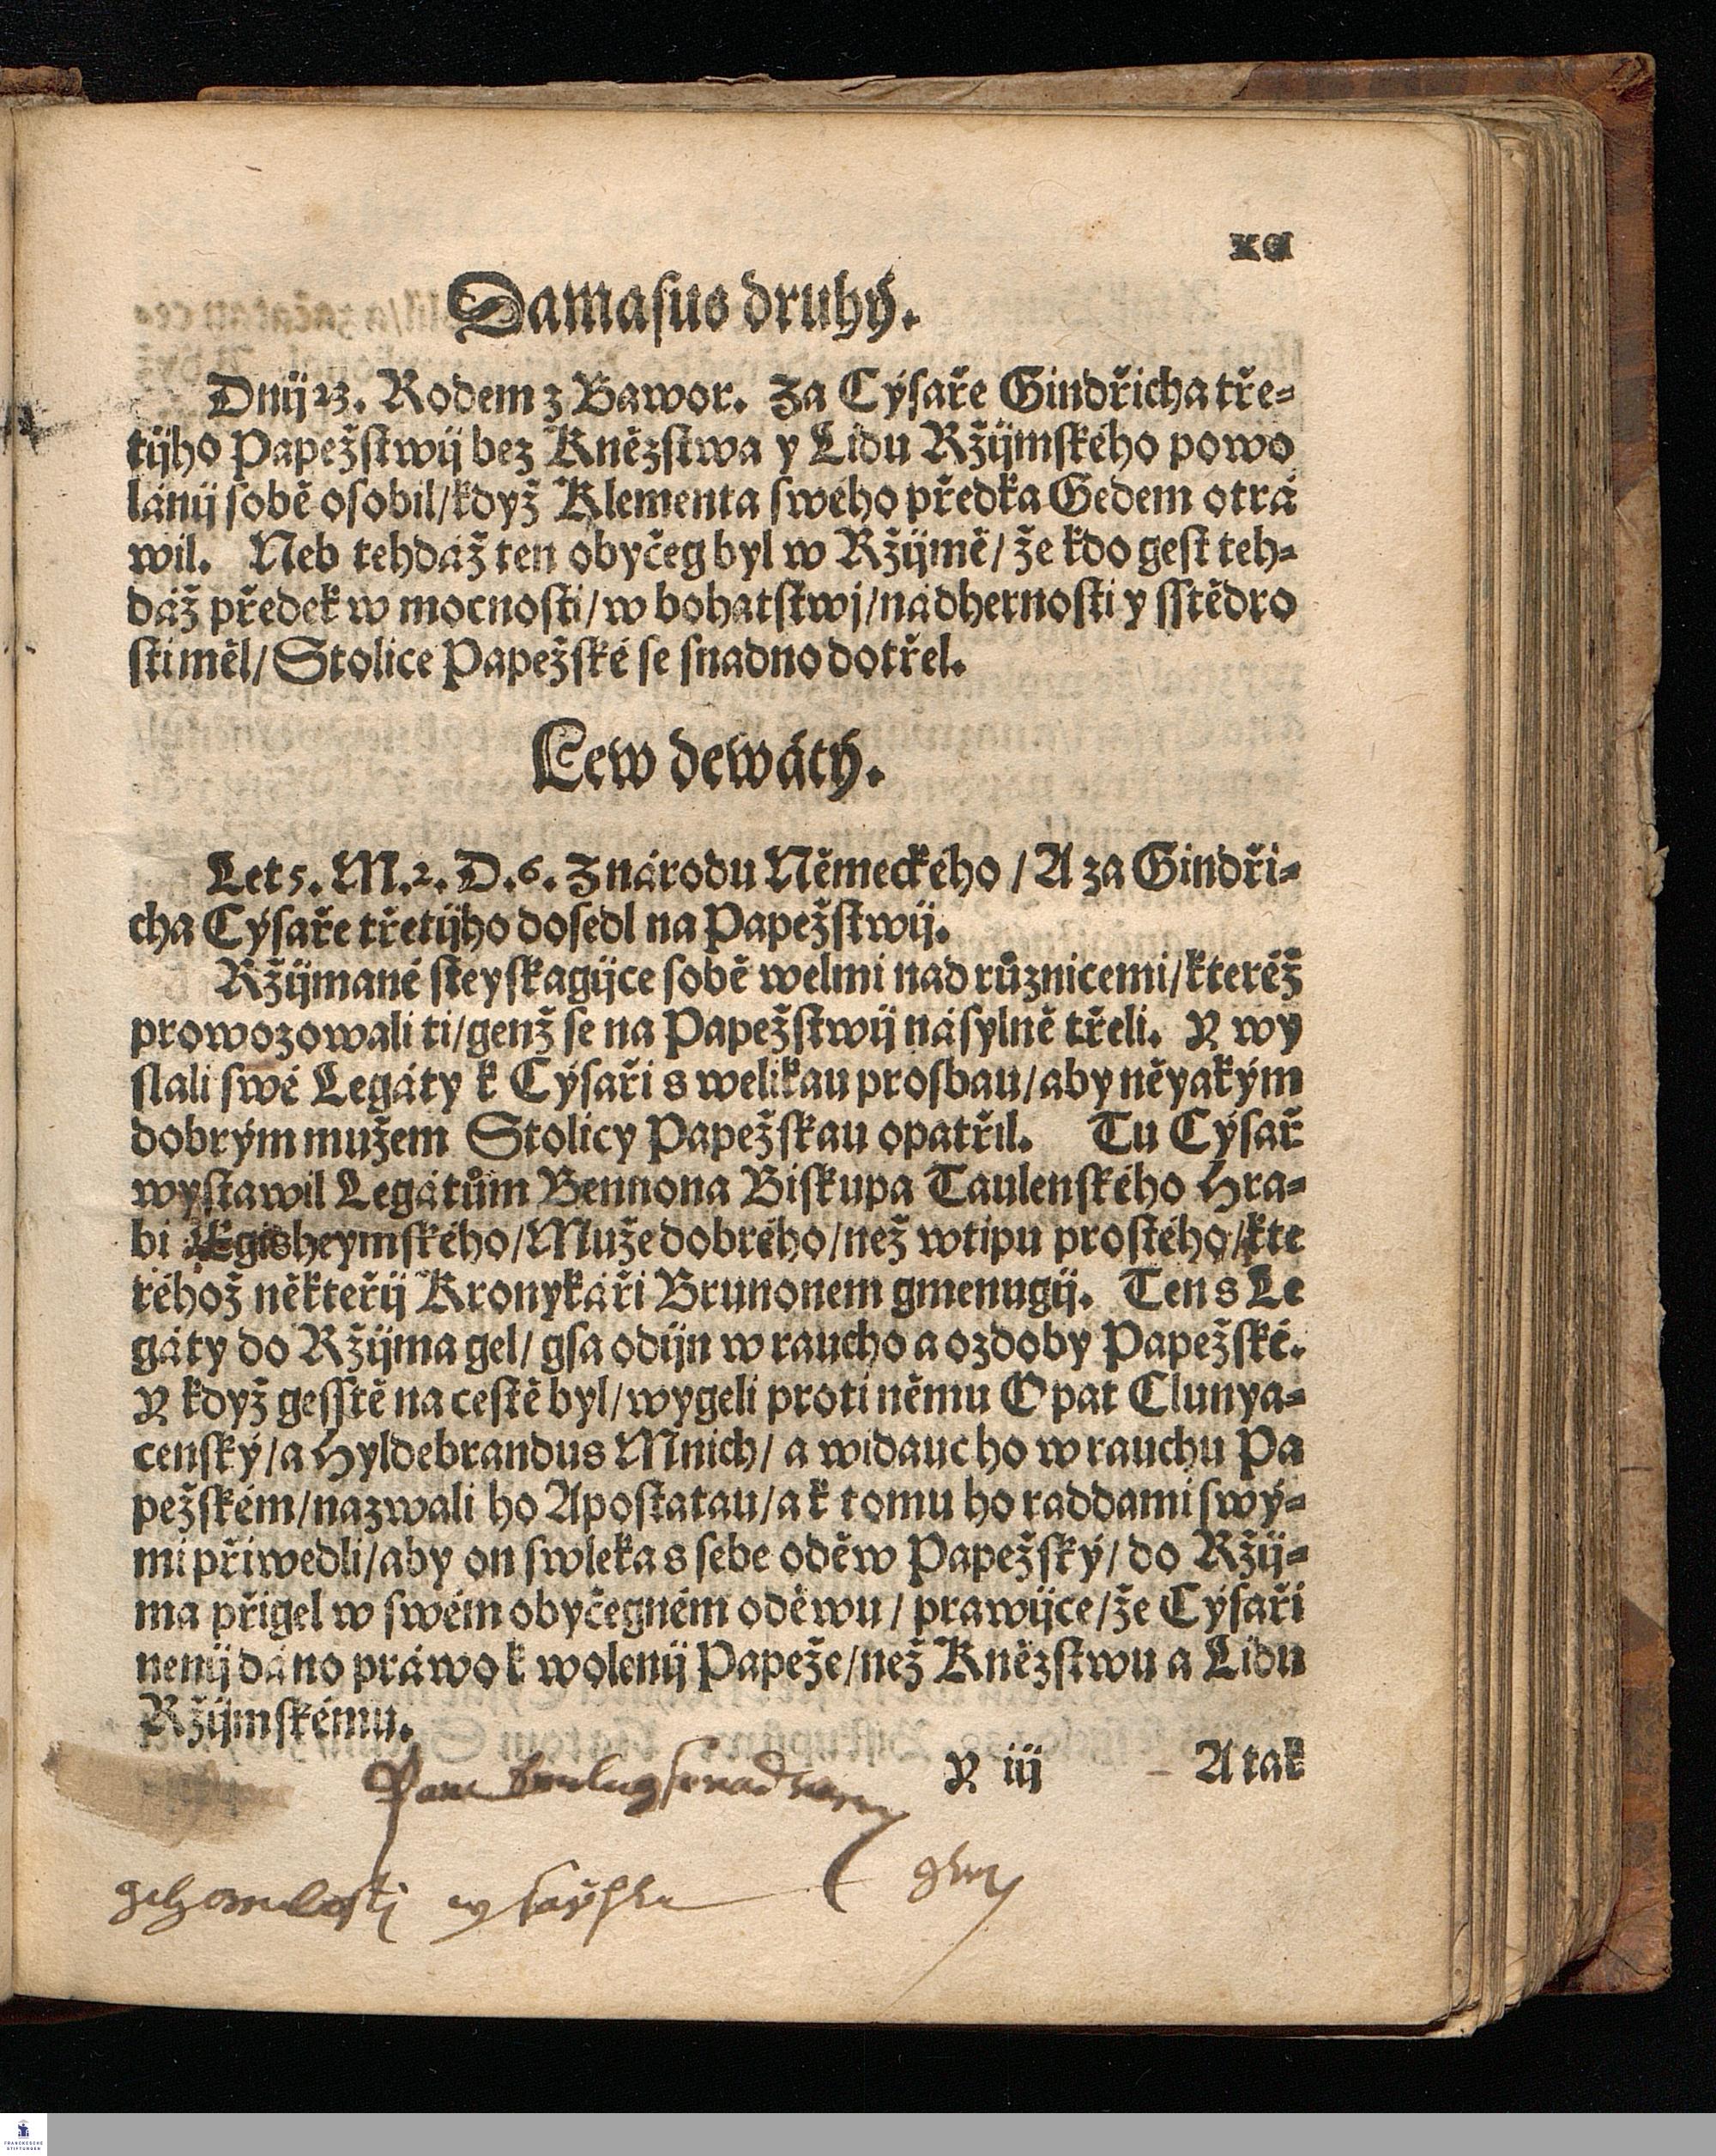 xc
Damasus druhý.
Dnij 23. Rodem z Bawor. Za Cýsaře Gindřicha tře-
tijho Papežstwij bez Knězstwa y Lidu Ržijmského powo
lánij sobě osobil/ když Klementa swého předka Gedem otrá
wil. Neb tehdáž ten obyčeg byl w Ržijmě/ že kdo gest teh-
dáž předek w mocnosti/ w bohatstwj/ nádhernosti y sstědro
sti měl/ Stolice Papežské se snadno dotřel.
Lew dewátý.
Let 5. M. 2. D. 6. Z národu Německého / A za Gindři-
cha Cýsaře třetijho dosedl na Papežstwij.
Ržijmané steyskagijce sobě welmi nad různicemi/ kteréž
prowozowali ti/ genž se na Papežstwij násylně třeli. Y wy
slali swé Legáty k Cýsaři s welikau prosbau/ aby něyakým
dobrým mužem Stolicy Papežskau opatřil. Tu Cýsař
wystawil Legátům Bennona Biskupa Taulenského Hra-
bi Egisheymského/ Muže dobrého/ než wtipu prostého/ kte
réhož někteřij Kronykáři Brunonem gmenugij. Ten s Le
gáty do Ržijma gel/ gsa odijn w raucho a ozdoby Papežské.
Y když gesstě na cestě byl/ wygeli proti němu Opat Clunya-
censký/ a Hyldebrandus Mnich/ a widauc ho w rauchu Pa
pežském/ nazwali ho Apostatau/ a k tomu ho raddami swý-
mi přiwedli/ aby on swleka s sebe oděw Papežský/ do Ržij-
ma přigel w swém obyčegném oděwu / prawijce/ že Cýsaři
nenij dáno práwo k wolenij Papeže/ než Kněztwu a Lidu
Ržijmskému.
Y iij A tak
Pane
FRANCKESCHE
STIFTUNGEN